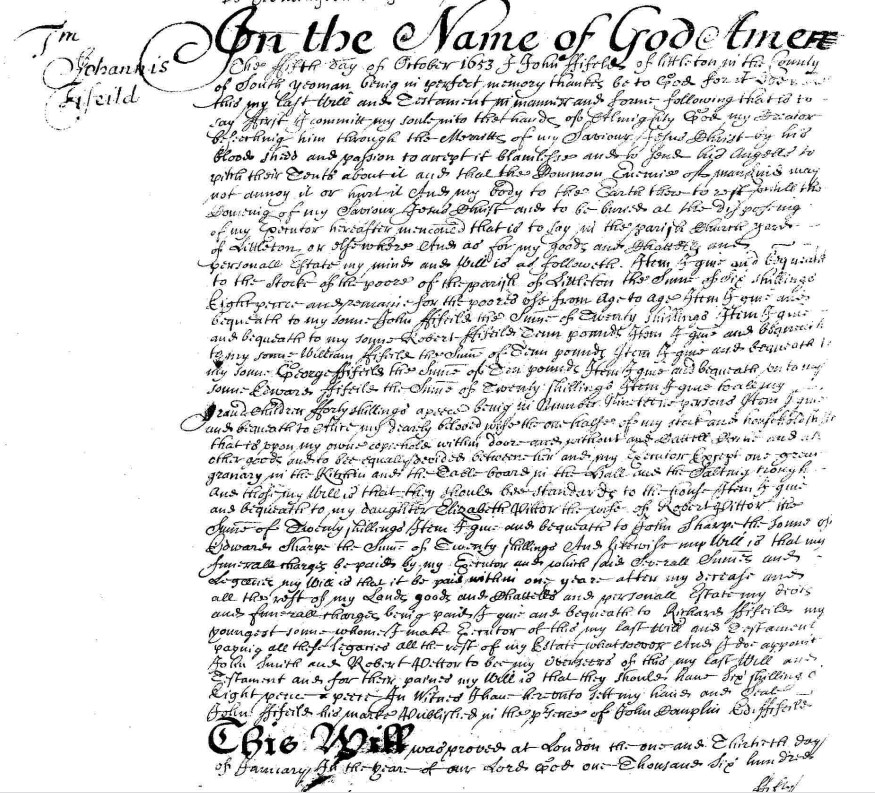 Tm
Johannis
Fifeild
In the Name of God Amen
The fifth day of October 1653 I John Fifeild of Littleton in the County
of South yeoman being in perfect memory thankes be to God for it
this my last Will and Testament in manner and forme following that is to
say first I committ my soule into the hands of Almighty God my Creator
beseeching him through the Merritts of my Saviour Jesus Christ by his
blood shedd and passion to accept it blamlesse and to send his Angells to
pitch their Tents about it and that the Common Enemie of mankind may
not annoy it or hurt it And my body to the Earth there to rest untill the
Comeing of my Saviour Jesus Christ and to be buried at the disposeing
of my Executor hereafter mencioned that is to say in the parish Church yard
of Littleton or elsewhere And as for my goods and Chattells and
personall Estate my minde and Will is as followeth. Item I give and bequeath
to the Stocke of the poore of the parish of Littleton the Sume of six shillings
Eight pence and remaine for the poores use from Age to age Item I give and
bequeath to my sonne John Fifeild the Sume of Twenty shillings Item I give
and bequeath to my sonne Robert Fifeild Tenn pounds Item I give and bequeath
to my sonne William Fifeild the Sume of Tenn pounds Item I give and bequeath
my sonne George Fifeild the Sume of Ten pounds Item I give and bequeath unto my
sonne Edward Fifeild the Sume of Twenty shillings Item I give to all my
Grand Children fforty shillings a peece being in Number Nineteene persons Item I give
and bequeath to my dearly beloved wife the one halfe of my stock and household
that is upon my owne copiehold within doore and without and Cattell Corne and all
other goods and to bee equally devided betweene her and my Executor Except one great
granary in the Kitchin and the Table board in the Hall and the Salting trough
And those my Will is that they should bee Standards to the house Item I give
and bequeath to my daughter Elizabeth Vittor the wife of Robert Vittor the
Sume of Twenty shillings Item I give and bequeath to John Sharpe the sonne of
Edward Sharpe the Sume of Twenty shillings And likewise my Will is that my
funerall charges be paied by my Executor and which said severall Sumes and
Legacies my Will is that it be paid within one yeare after my decease and
all the rest of my Lands goods and Chattells and personall Estate my debts
and funerall charges being paid I give and bequeath to Richard Fifeild my
youngest sonne whome I make Executor of this my last Will and Testament
paying all these Legacies all the rest of my Estate whatsoever And I doe appoint
John Smith and Robert Vittor to bee my Overseers of this my last Will and
Testament and for their paines my Will is that they should have Six shillings
Eight pence a peece In Witnes I have hereunto sett my hand and Seale
John Fifeild his marke Published in the presence of John Fifeild
This Will was proved at London the one and Thirtieth day
of January In the yeare of our Lord God one Thousand Six hundred